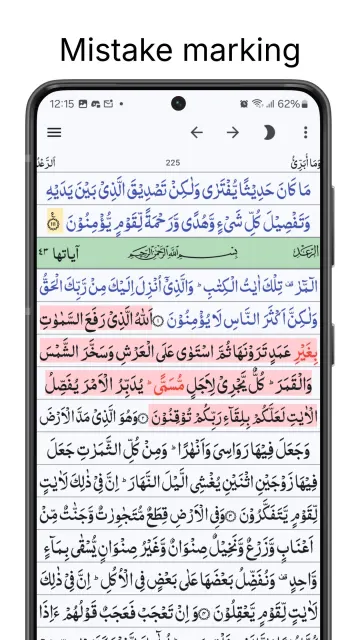 Mistake marking
12:15 62%
وَمَا أُبَرِّئُ 225 اَلرَّعْدُ
مَا كَانَ حَدِيْثًا يُّفْتَرٰى وَلٰكِنْ تَصْدِيْقَ الَّذِىْ بَيْنَ يَدَيْهِ
وَتَفْصِيْلَ كُلِّ شَىْءٍ وَّهُدًى وَّرَحْمَةً لِّقَوْمٍ يُّؤْمِنُوْنَ
اَلرَّعْد بِسْمِ اللهِ الرَّحْمٰنِ الرَّحِيْمِ آياتها ٤٣
الٓمّٓرٰ ۚ تِلْكَ اٰيٰتُ الْكِتٰبِ ؕ وَالَّذِىْۤ اُنْزِلَ اِلَيْكَ مِنْ رَّبِّكَ الْحَقُّ
وَلٰكِنَّ اَكْثَرَ النَّاسِ لَا يُؤْمِنُوْنَ ① اَللّٰهُ الَّذِىْ رَفَعَ السَّمٰوٰتِ
بِغَيْرِ عَمَدٍ تَرَوْنَهَا ثُمَّ اسْتَوٰى عَلَى الْعَرْشِ وَسَخَّرَ الشَّمْسَ
وَالْقَمَرَ ؕ كُلٌّ يَّجْرِىْ لِاَجَلٍ مُّسَمًّى ؕ يُدَبِّرُ الْاَمْرَ يُفَصِّلُ
الْاٰيٰتِ لَعَلَّكُمْ بِلِقَآءِ رَبِّكُمْ تُوْقِنُوْنَ ② وَهُوَ الَّذِىْ مَدَّ الْاَرْضَ
وَجَعَلَ فِيْهَا رَوَاسِىَ وَاَنْهٰرًا ؕ وَمِنْ كُلِّ الثَّمَرٰتِ جَعَلَ
فِيْهَا زَوْجَيْنِ اثْنَيْنِ يُغْشِى الَّيْلَ النَّهَارَ ؕ اِنَّ فِىْ ذٰلِكَ لَاٰيٰتٍ
لِّقَوْمٍ يَّتَفَكَّرُوْنَ ③ وَفِى الْاَرْضِ قِطَعٌ مُّتَجٰوِرٰتٌ وَّجَنّٰتٌ مِّنْ
اَعْنَابٍ وَّزَرْعٌ وَّنَخِيْلٌ صِنْوَانٌ وَّغَيْرُ صِنْوَانٍ يُّسْقٰى بِمَآءٍ
وَّاحِدٍ ۟ وَنُفَضِّلُ بَعْضَهَا عَلٰى بَعْضٍ فِى الْاُكُلِ ؕ اِنَّ فِىْ ذٰلِكَ
لَاٰيٰتٍ لِّقَوْمٍ يَّعْقِلُوْنَ ④ وَاِنْ تَعْجَبْ فَعَجَبٌ قَوْلُهُمْ ءَاِذَا